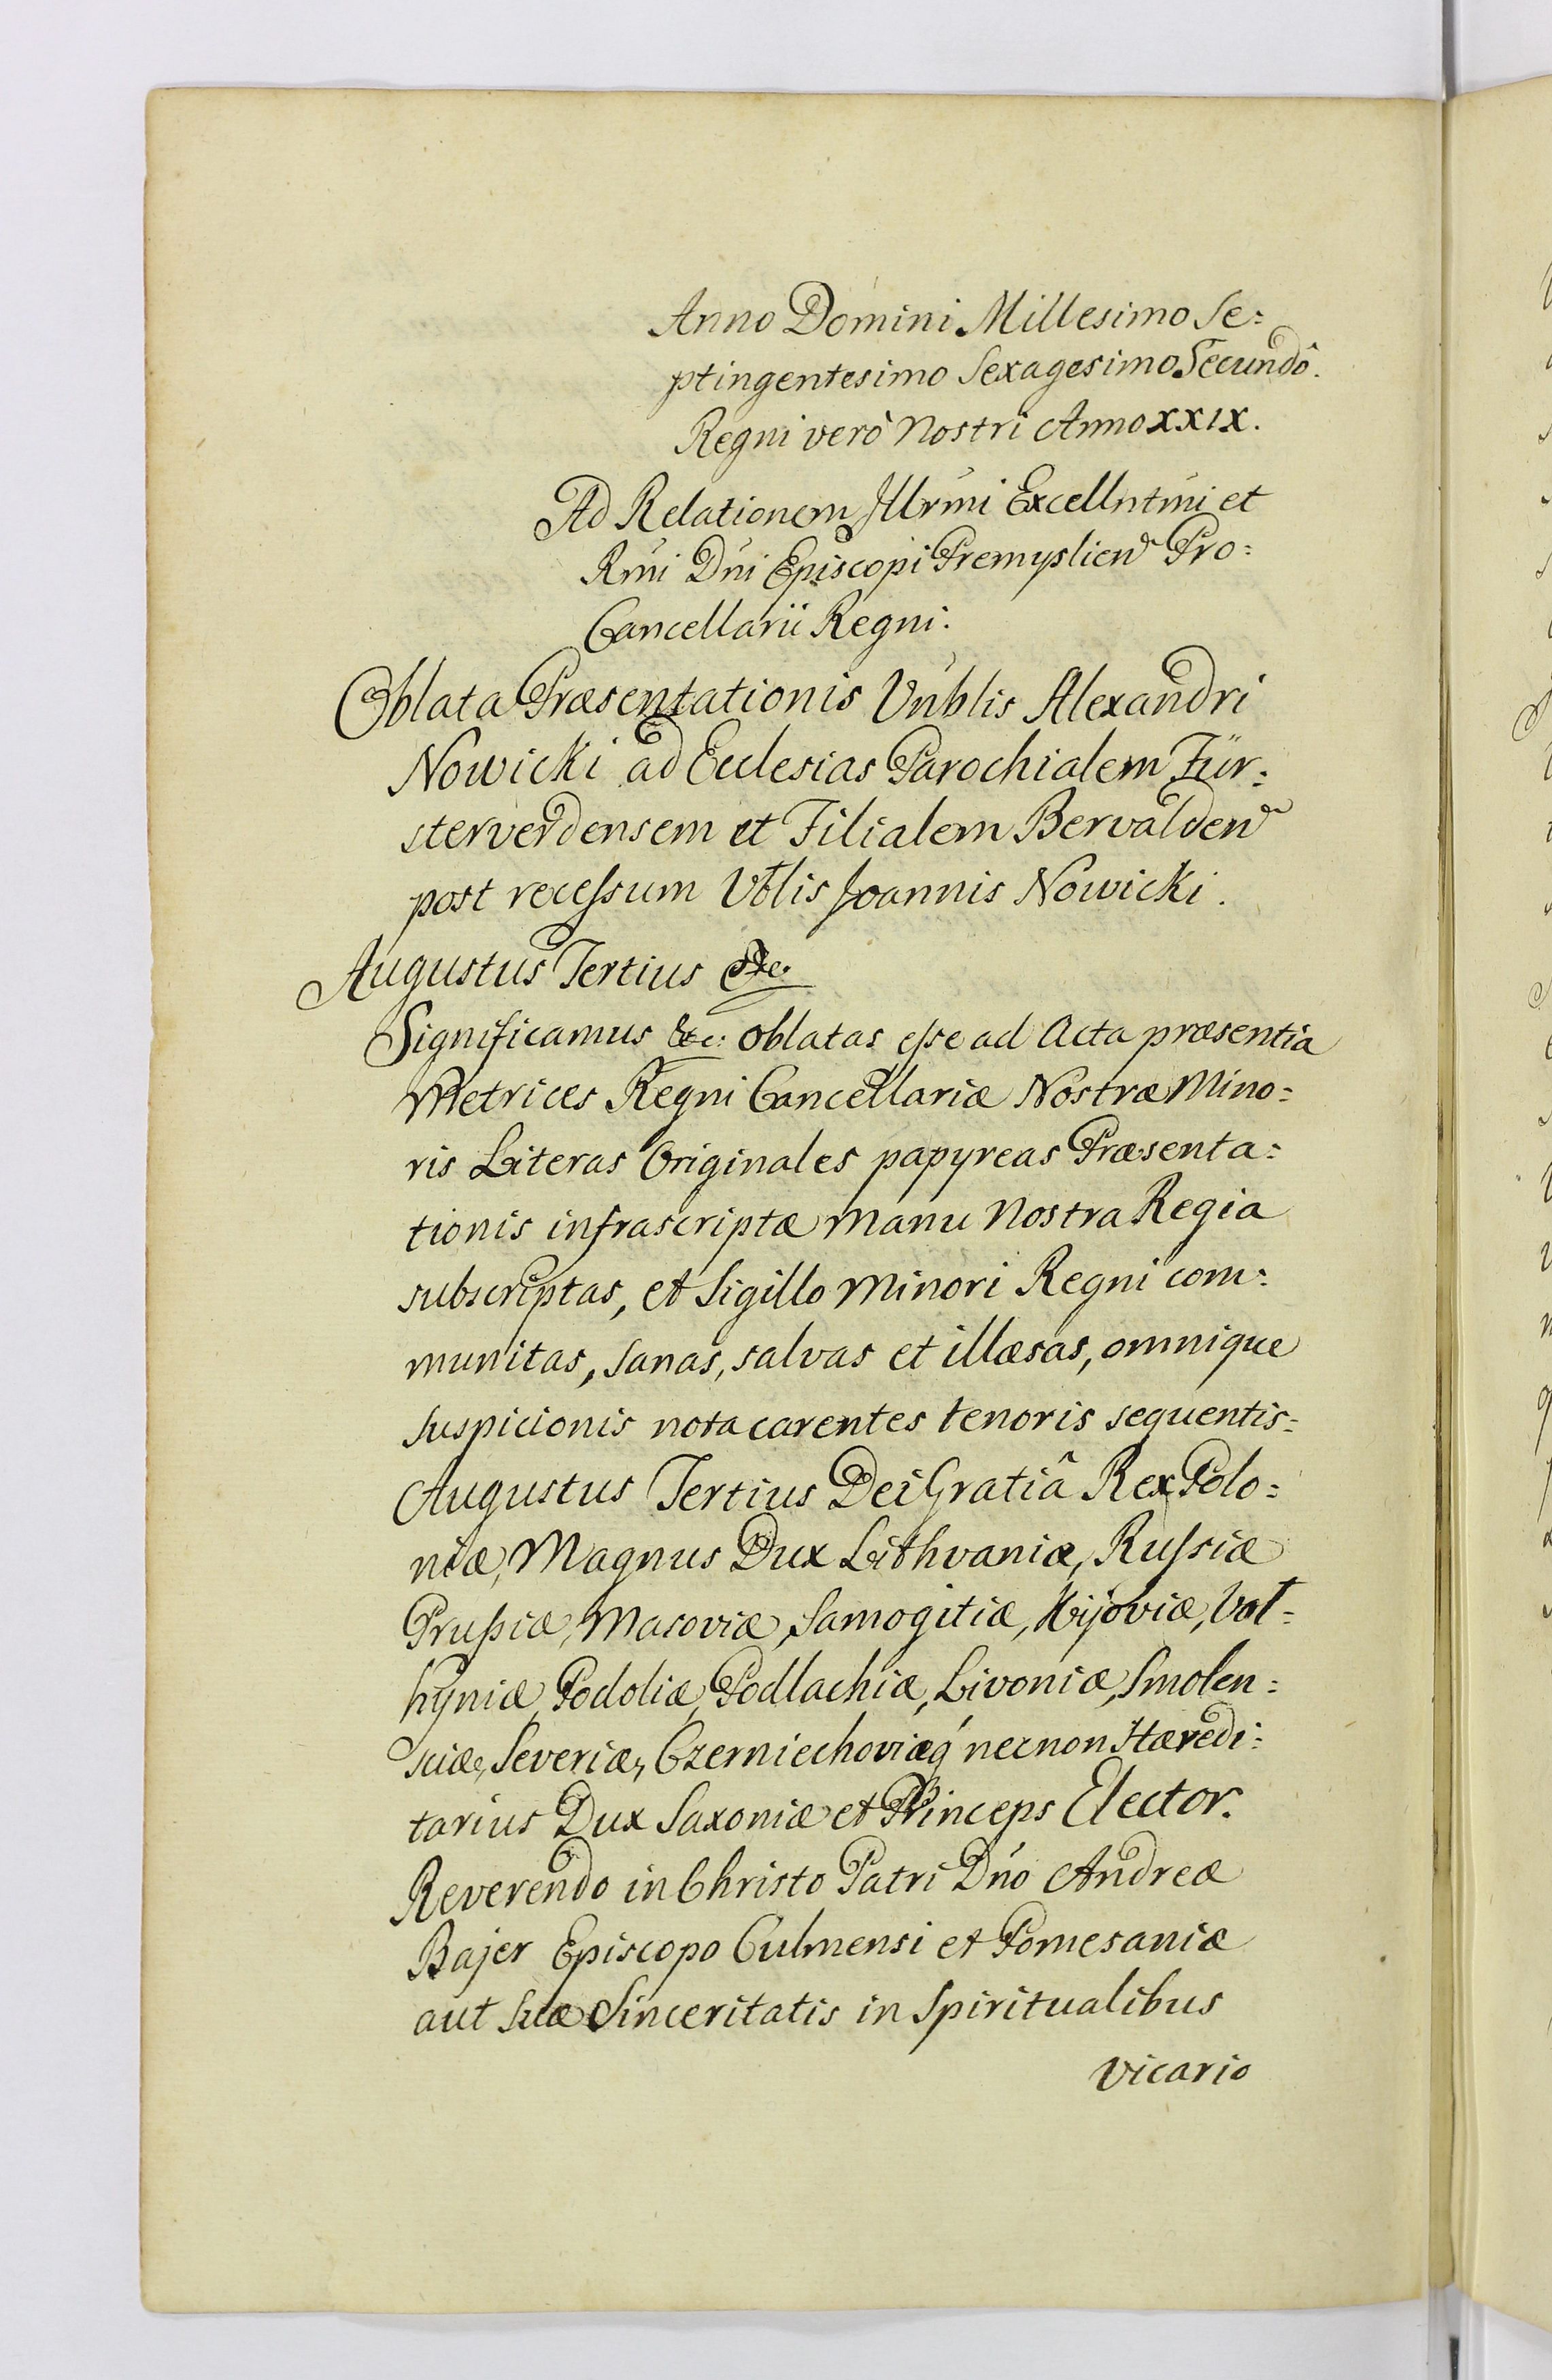 Anno Domini Millesimo Se:
ptingentesimo Sexagesimo Secundô.
Regni verò Nostri Anno XXIX.
Ad Relationem Illrmi Excellntmi et
Rmi Dni Episcopi Premyslien Pro:
Cancellarii Regni.
Oblata Præsentationis Vnblis Alexandri
Nowicki ad Ecclesias Parochialem Für:
sterverdensem et Filialem Bervalden
post recessum Vblis Joannis Nowicki.
Augustus Tertius &c.
Significamus &c: oblatas esse ad Acta præsentia
Metrices Regni Cancellariæ Nostræ Mino:
ris Literas Originales papyreas Præsenta:
tionis infrascriptæ Manu Nostra Regia
subscriptas, et Sigillo Minori Regni com:
munitas, sanas, salvas et illæsas, omnique
suspicionis nota carentes tenoris sequentis:
Augustus Tertius Dei Gratiâ Rex Polo:
niæ, Magnus Dux Lithvaniæ, Russiæ
Prussiæ, Masoviæ, Samogitiæ, Kijoviæ, Vol:
hyniæ, Podoliæ, Podlachiæ, Livoniæ, Smolen:
sciæ, Severiæ, Czerniechoviæq' necnon Hæredi:
tarius Dux Saxoniæ et Princeps Elector.
Reverendo in Christo Patri Dno Andreæ
Bajer Episcopo Culmensi et Pomesaniæ
aut suæ Sinceritatis in Spiritualibus
Vicario